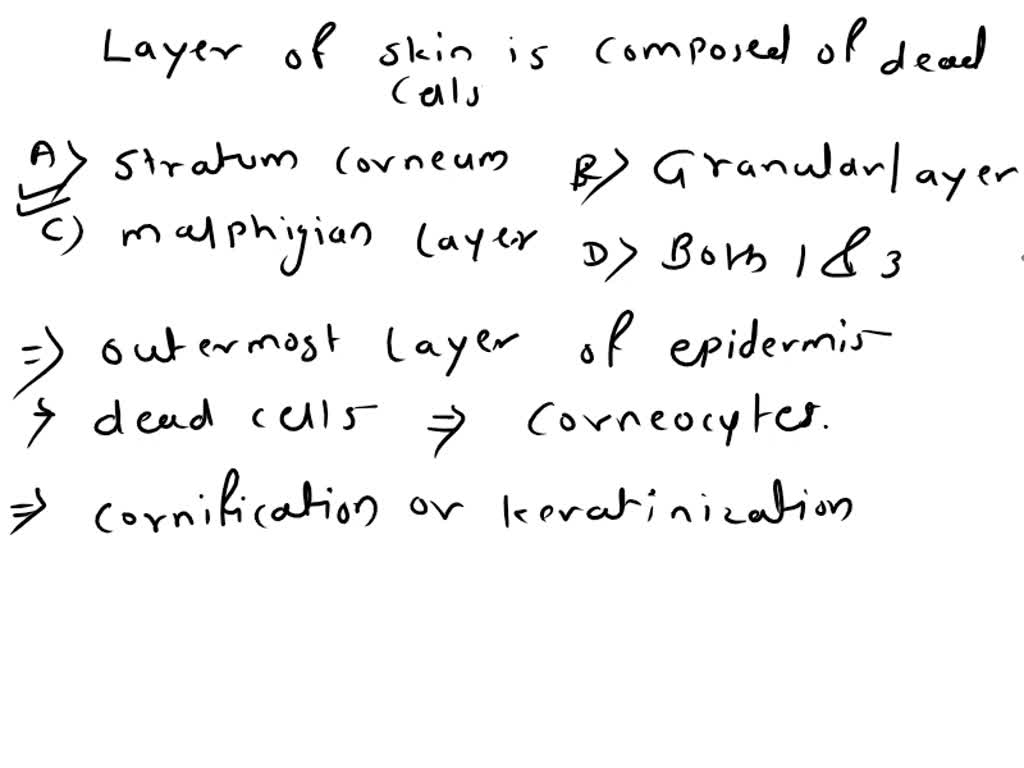 Layer of skin is composed of dead
cells
A) Stratum Corneum B) Granular layer
C) malphigian layer D) Both 1 & 3
⇒ outermost layer of epidermis
→ dead cells ⇒ Corneocytes.
⇒ cornification or keratinization